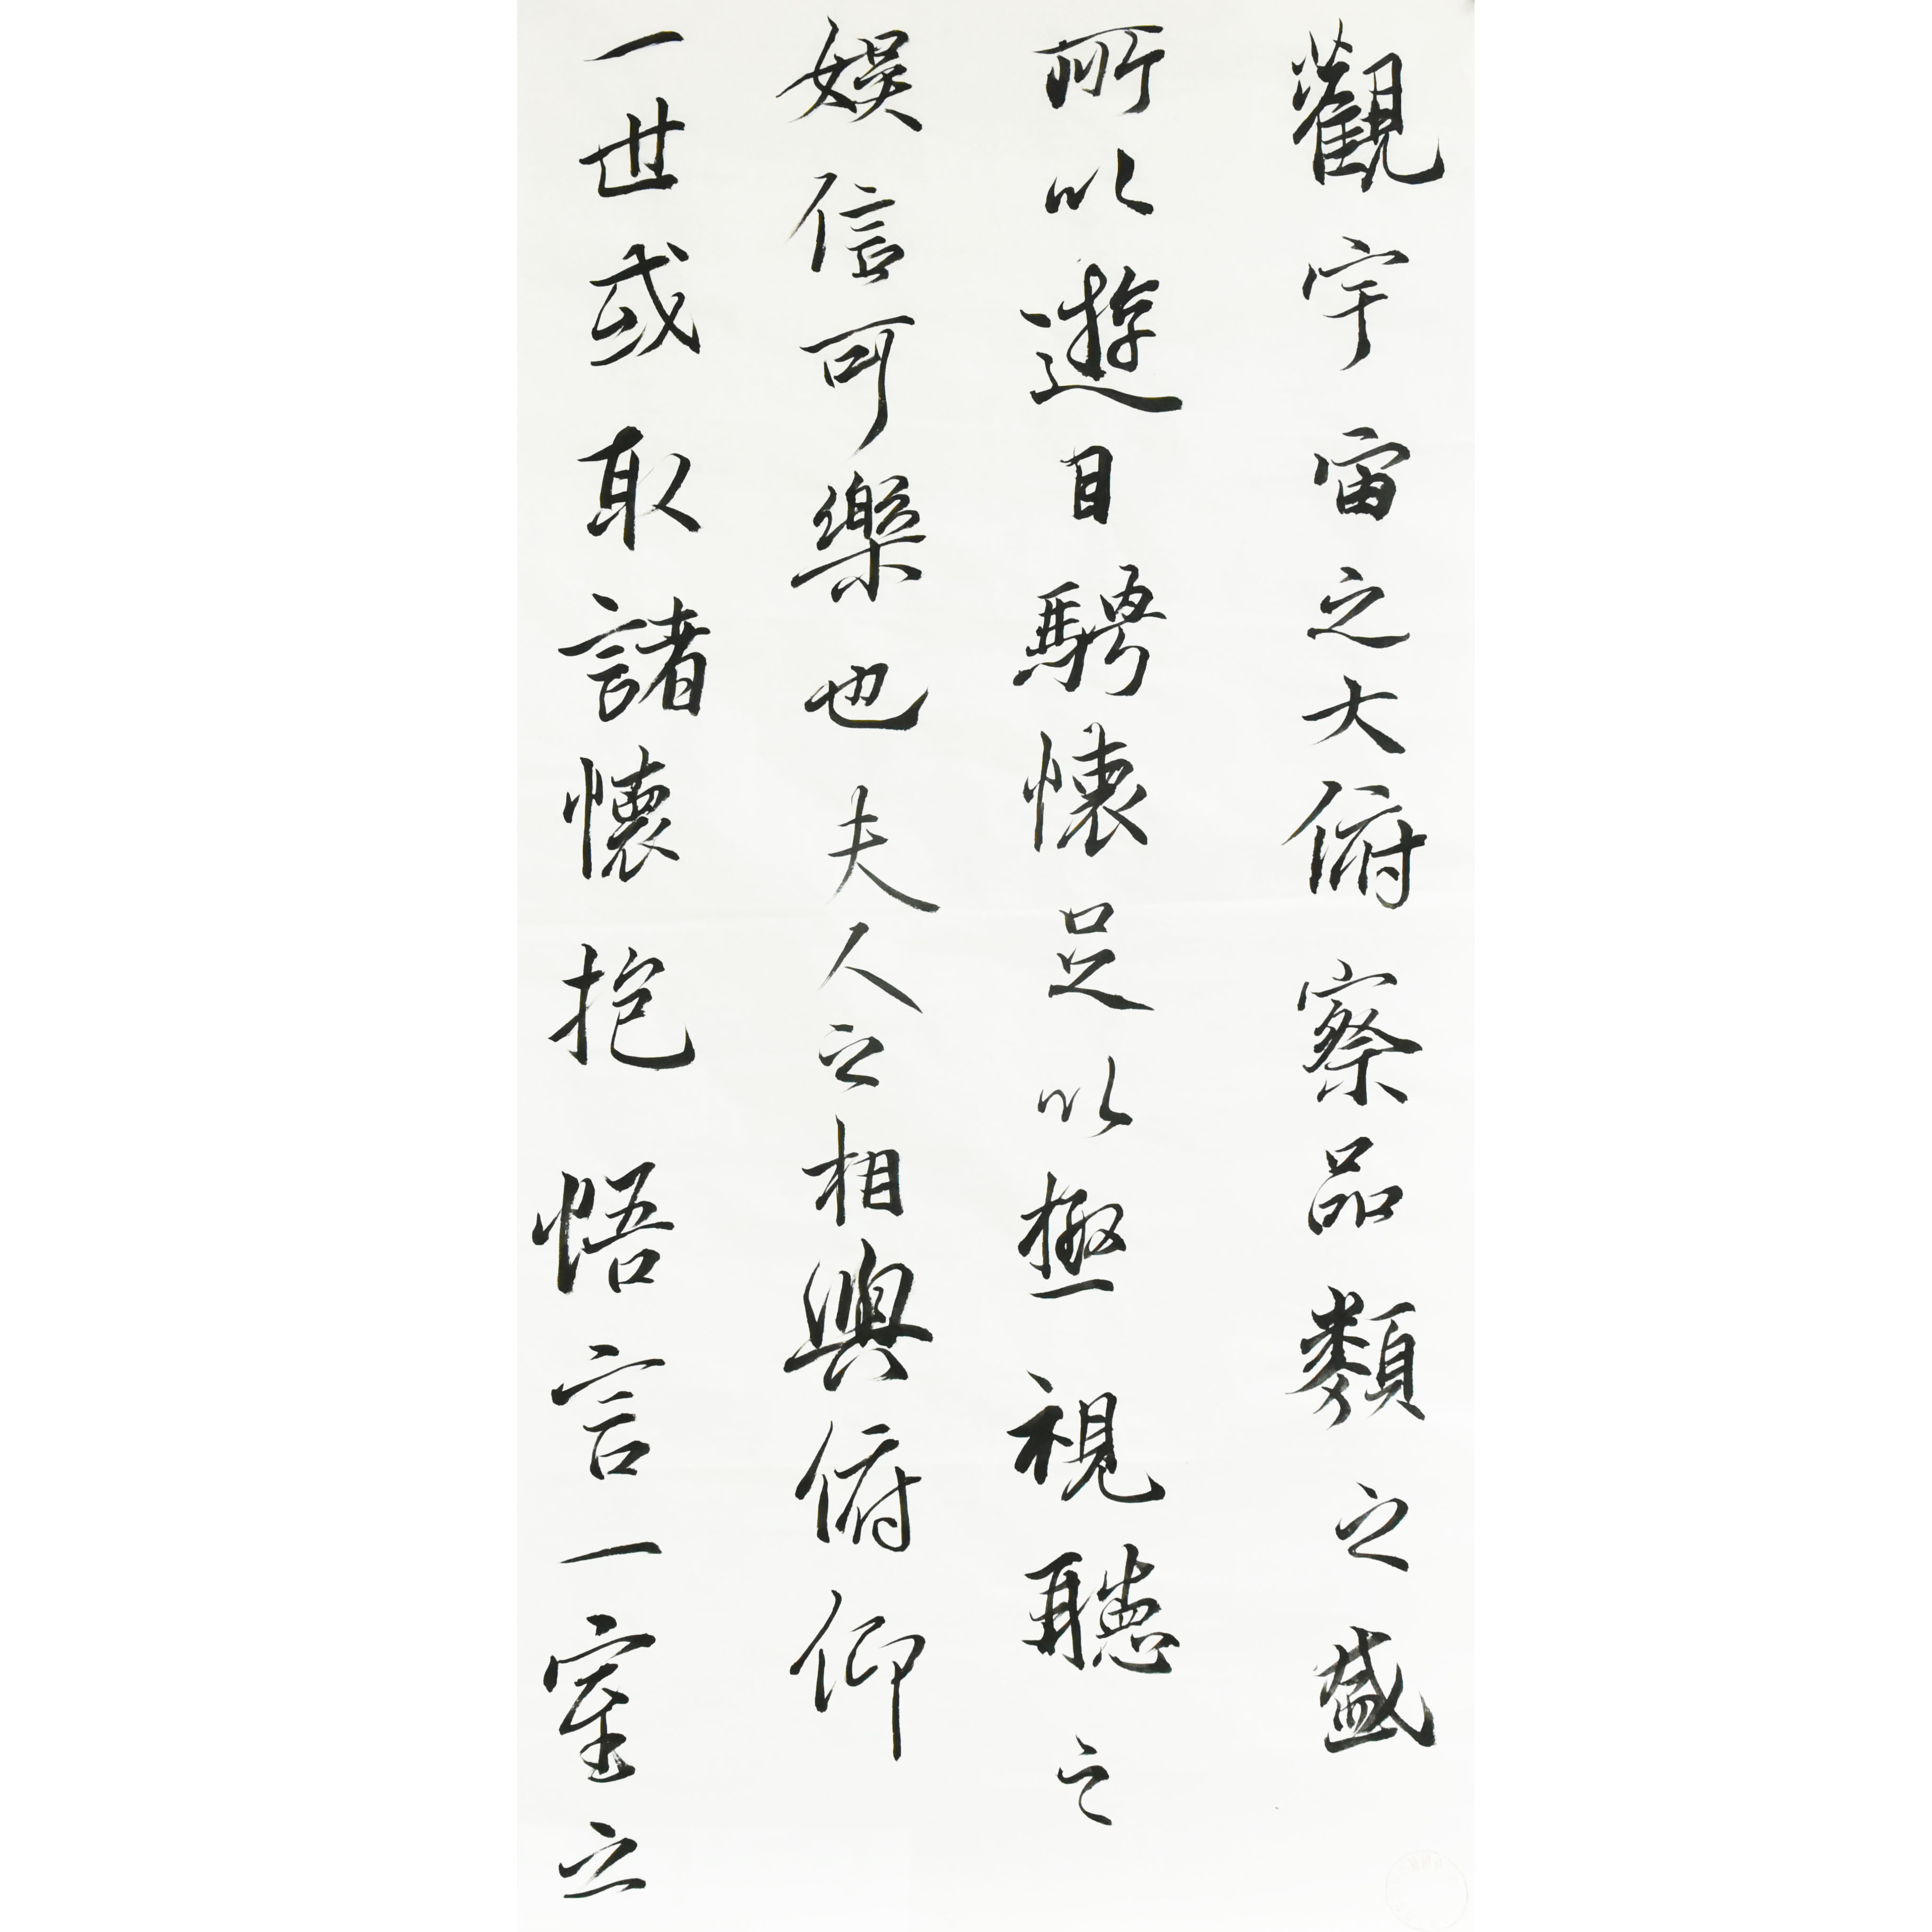 觀宇宙之大俯察品類之盛
所以遊目騁懷足以極視聽之
娛信可樂也夫人之相與俯仰
一世或取諸懷抱悟言一室之